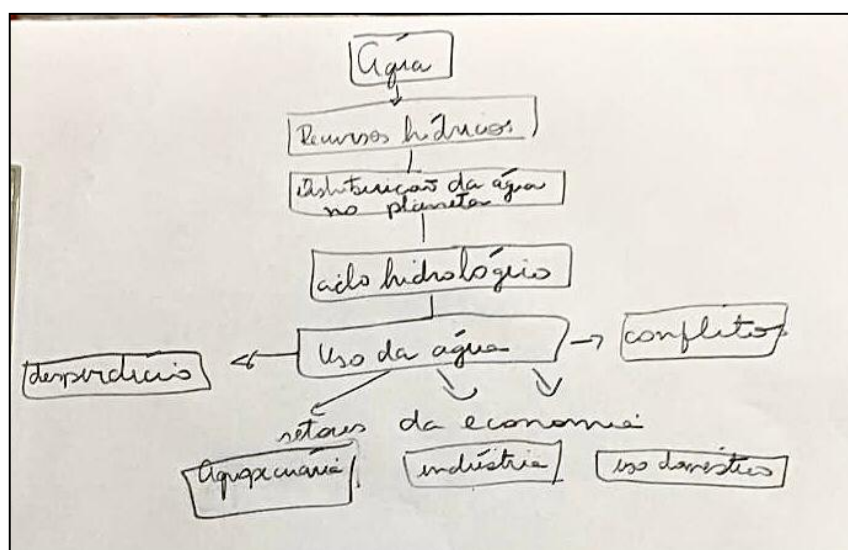 Água
Recursos hídricos
Distribuição da água
no planeta
ciclo hidrológico
Uso da água
conflitos
desperdício
setores da economia
Agropecuária
indústria
uso doméstico